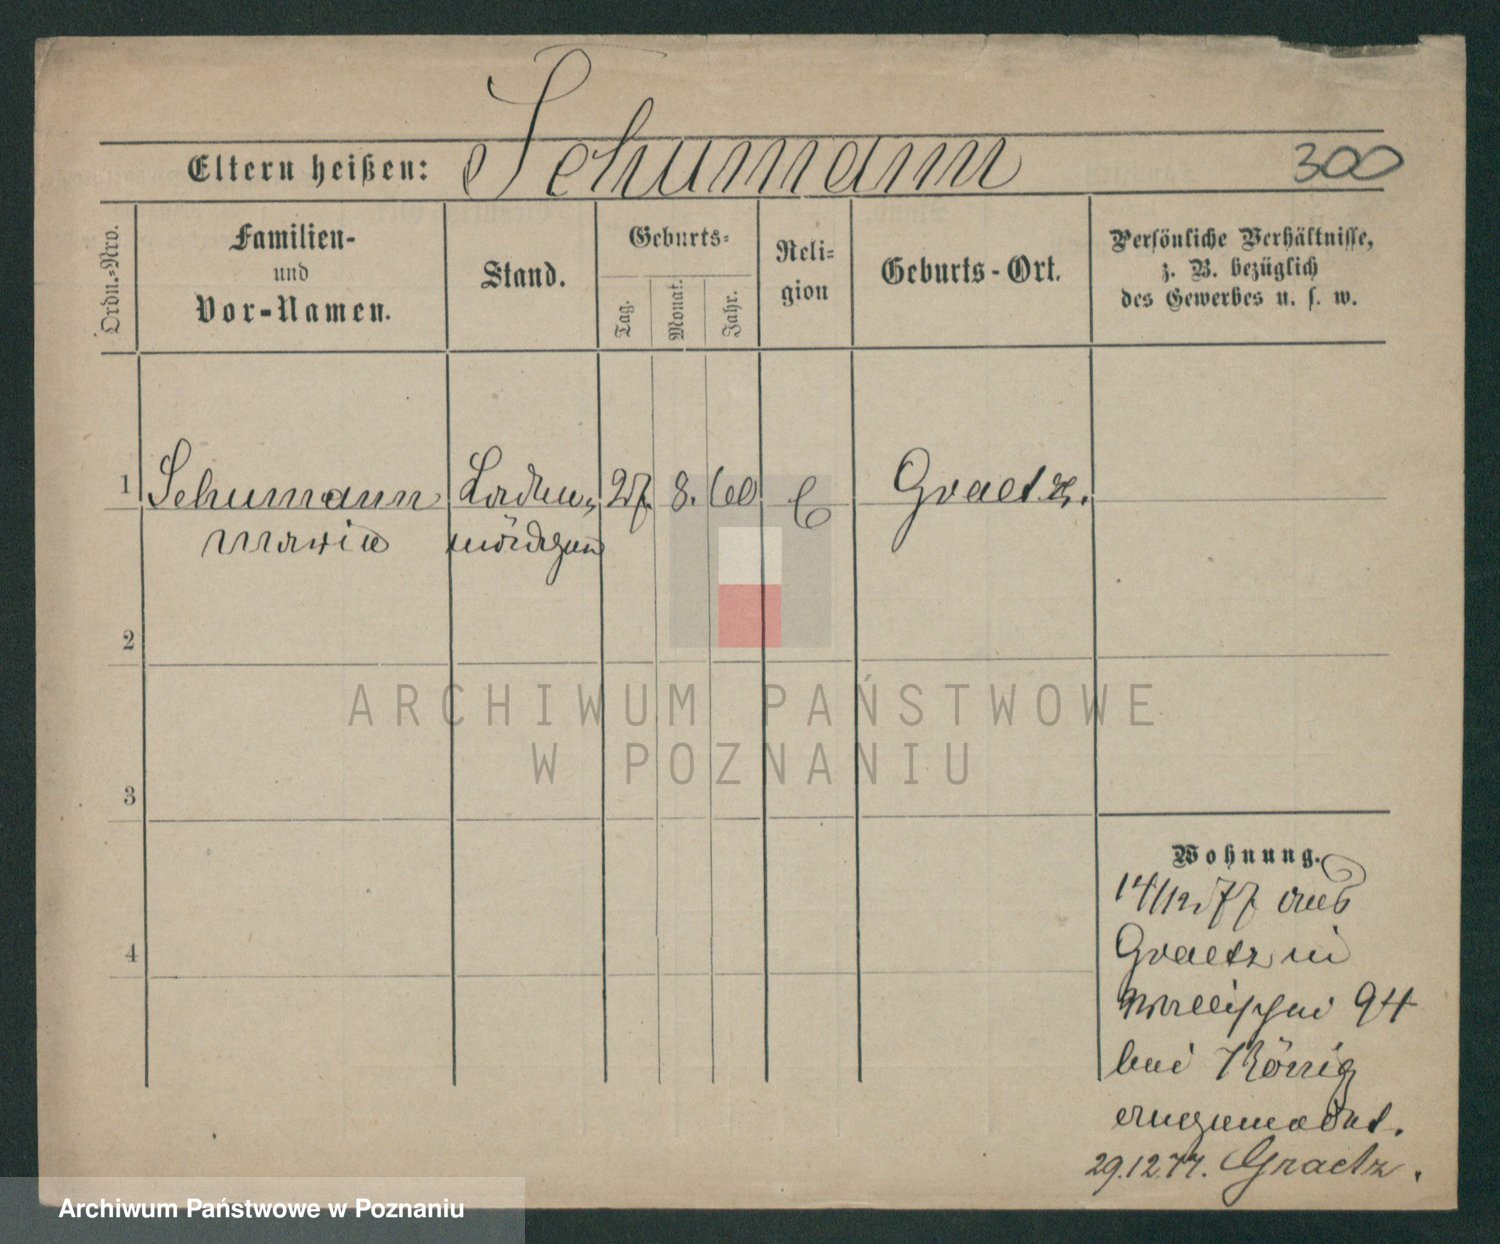 Eltern heißen: Schumann 300
Ordn.-Nro.
Familien-
und
Vor-Namen.
Stand.
Geburts-
Tag.
Monat.
Jahr.
Reli-
gion
Geburts-Ort.
Persönliche Verhältnisse,
z. B. bezüglich
des Gewerbes u. s. w.
1 Schumann Laden- 27. 8. 60 Graetz.
Marie mädchen
2
3
4
ARCHIWUM PAŃSTWOWE
W POZNANIU
Wohnung.
14/12 77 aus
Graetz in
Wallischei 94
bei König
angemeldet.
29.12.77. Graetz.
Archiwum Państwowe w Poznaniu